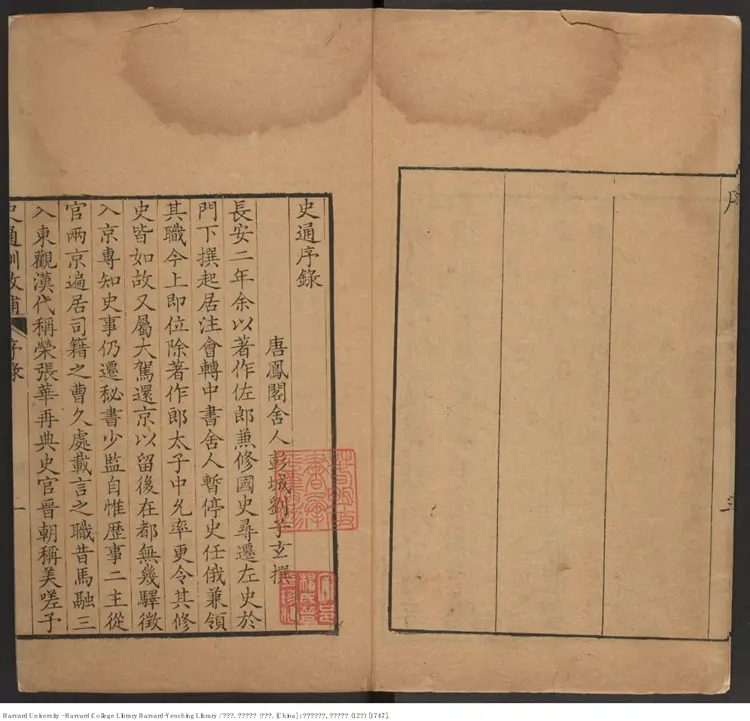 史通序錄
唐鳳閣舍人彭城劉子玄撰
長安二年余以著作佐郎兼修國史尋遷左史於
門下撰起居注會轉中書舍人暫停史任俄兼領
其職今上即位除著作郎太子中允率更令其修
史皆如故又屬大駕還京以留後在都無幾驛徵
入京專知史事仍遷秘書少監自惟歷事二主從
官兩京遍居司籍之曹久處載言之職昔馬融三
入東觀漢代稱榮張華再典史官晉朝稱美嗟予
史通訓故補
序錄
一
Harvard University - Harvard College Library Harvard-Yenching Library / ???. ????? :???. [China] : ??????, ????? (12??) [1747].